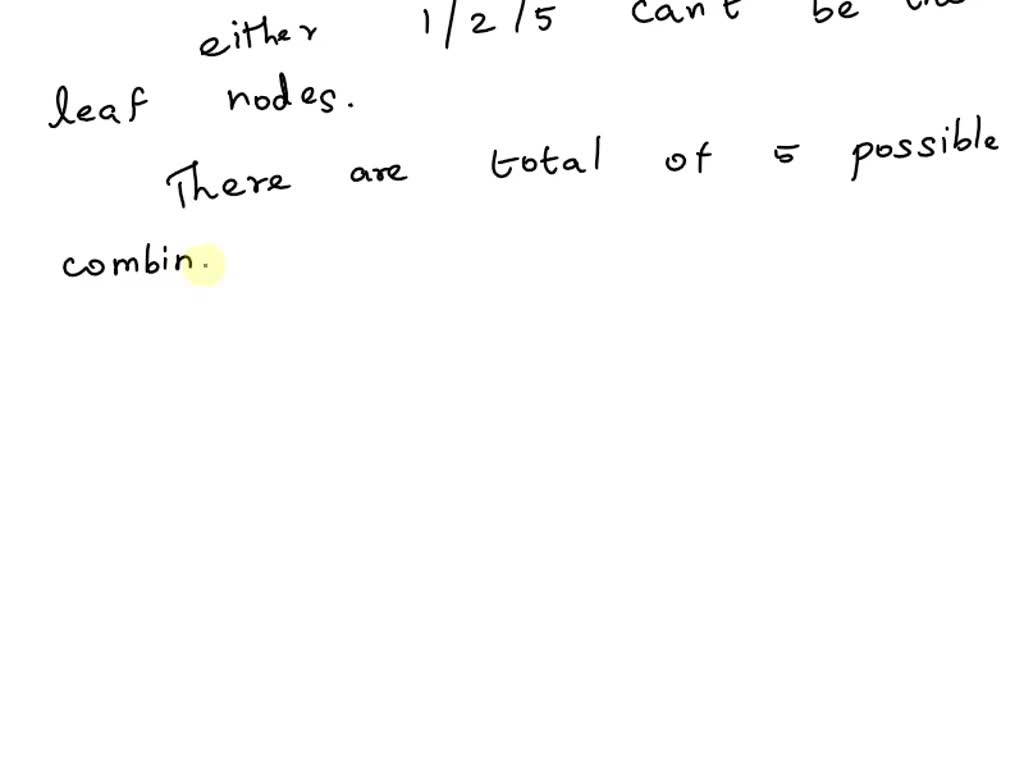 either 1/2/5 can't be the
leaf nodes.
There are total of 5 possible
combin.